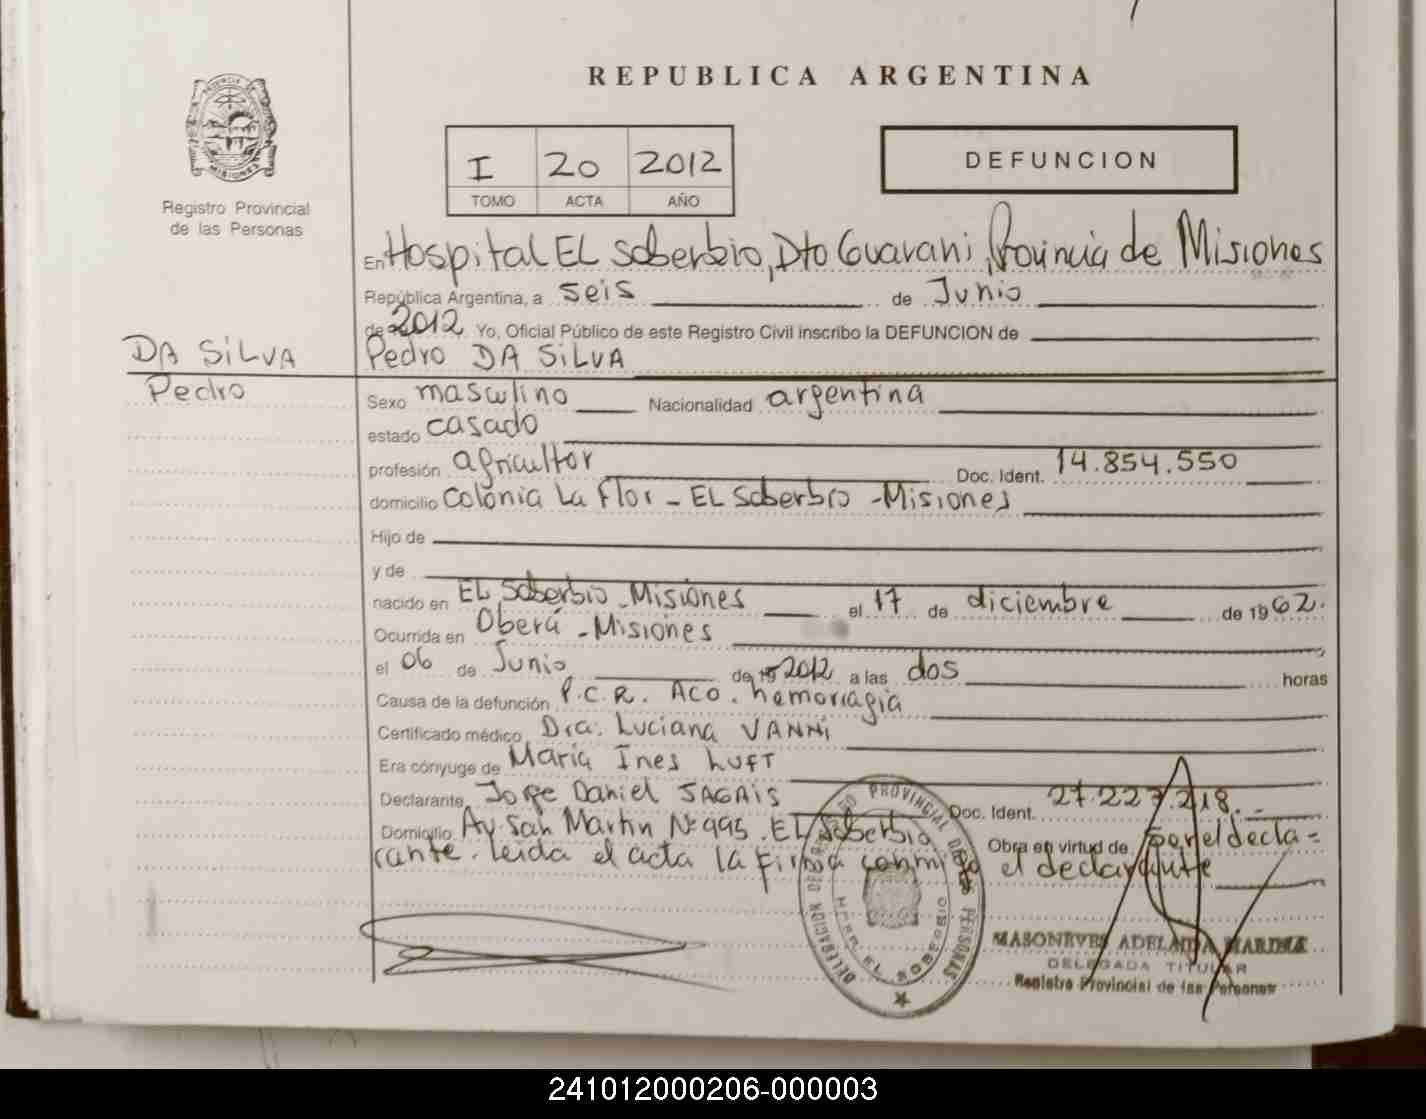 REPUBLICA ARGENTINA
I 20 2012
TOMO ACTA AÑO
DEFUNCION
PROVINCIA DE
MISIONES
Registro Provincial
de las Personas
En Hospital EL Soberbio, Dto Guarani, Provincia de Misiones
República Argentina, a seis de Junio
de 2012 Yo, Oficial Público de este Registro Civil inscribo la DEFUNCION de
DA SILVA Pedro DA SILVA
Pedro
Sexo masculino Nacionalidad argentina
estado casado
profesión agricultor Doc. Ident. 14.854.550
domicilio Colonia La Flor - EL Soberbio - Misiones
Hijo de
y de
nacido en EL Soberbio - Misiones el 17 de diciembre de 1962.
Ocurrida en Oberá - Misiones
el 06 de Junio de 19 2012 a las dos horas
Causa de la defunción P.C.R. ACO. hemorragia
Certificado médico Dra. Luciana VANNI
Era cónyuge de María Ines LUFT
Declarante Jorge Daniel SAGAIS Doc. Ident. 27.227.218.
Domicilio Av. San Martin Nº 995. EL Soberbio Obra en virtud de por el decla=
rante. Leida el acta la firma conmigo el declarante
DELEGACION REGISTRO PROVINCIAL DE LAS PERSONAS
EL SOBERBIO
MASONEVES ADELAIDA MARINA
DELEGADA TITULAR
Registro Provincial de las Personas
241012000206-000003